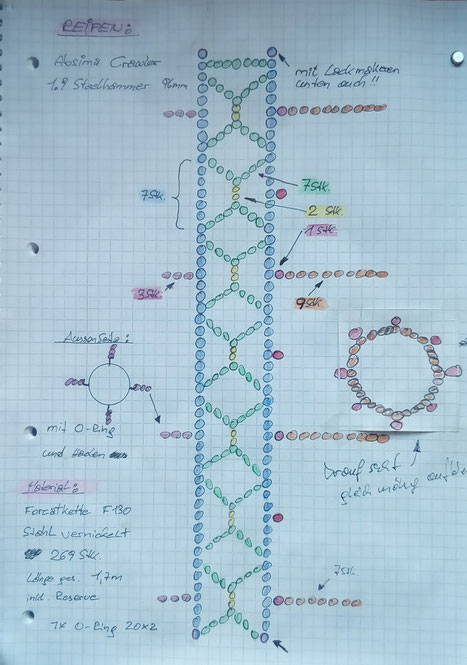 REIFEN:
Absima Crawler
1.9 Steelhammer 96mm
mit Lochmaken
unten auch!!
7Stk.
7Stk.
2 Stk
1 Stk
3Stk
9Stk
Aussenseite:
mit O-Ring
und
Material:
Forstkette F130
Stahl vernickelt
269 Stk.
Länge ges. 1,7m
inkl. Reserve
1x O-Ring 20x2
Drauf
gleich
7Stk